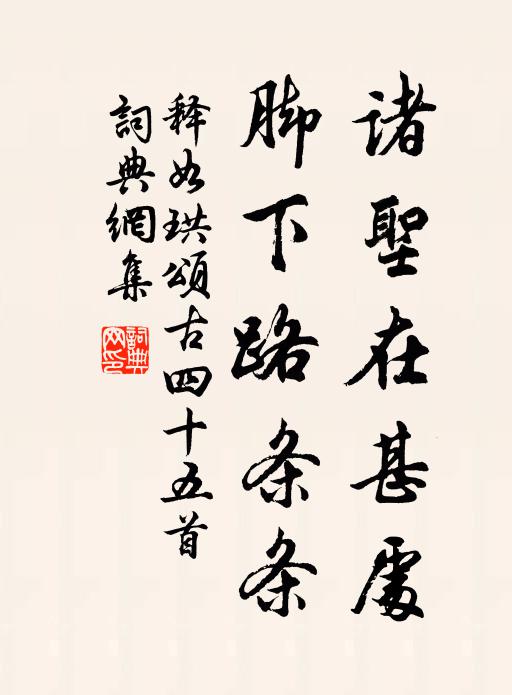 諸聖在甚處
脚下路条条
释如珙頌古四十五首
詞典網集
詞典
网印